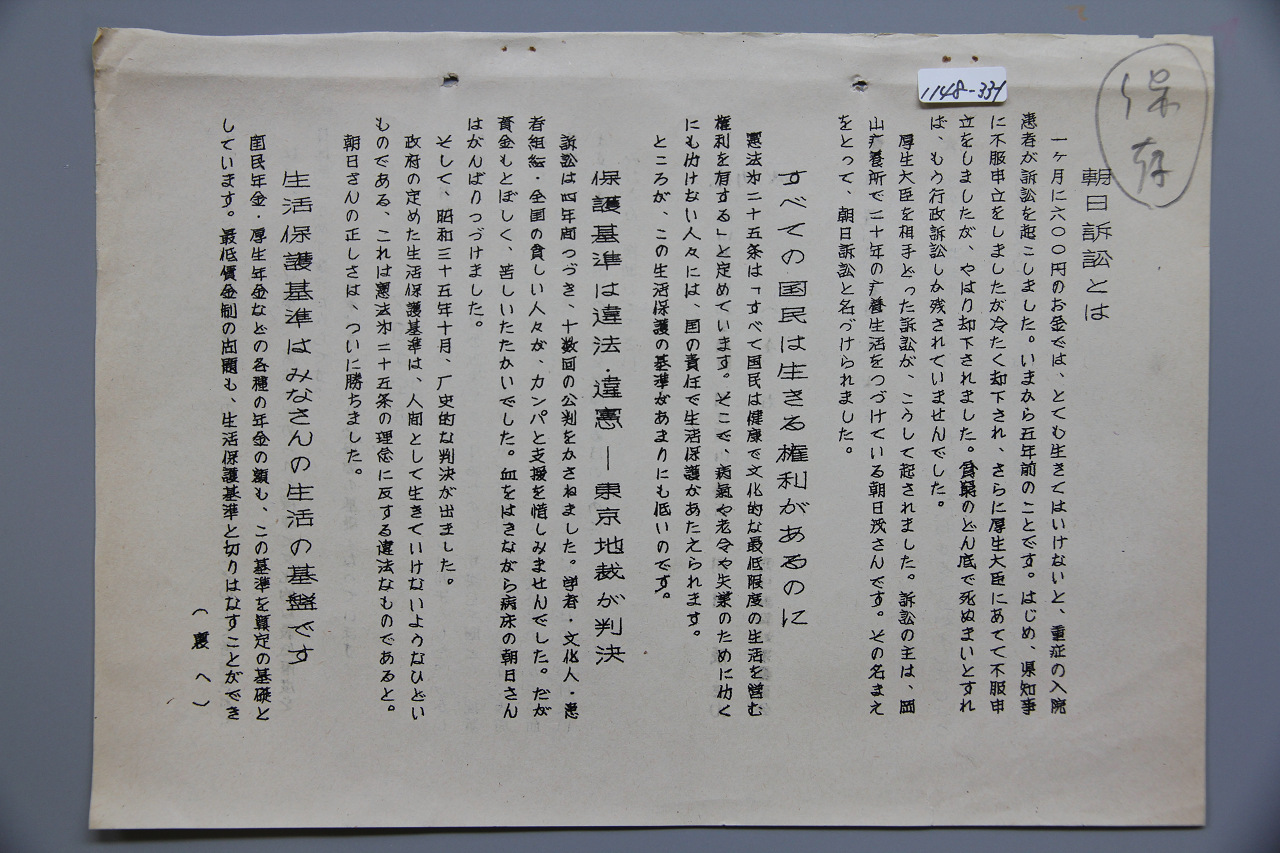 保存
1148-331
朝日訴訟とは
一ヶ月に六〇〇円のお金では、とても生きてはいけないと、重症の入院
患者が訴訟を起こしました。いまから五年前のことです。はじめ、県知事
に不服申立をしましたが冷たく却下され、さらに厚生大臣にあてて不服申
立をしましたが、やはり却下されました。貧窮のどん底で死ぬまいとすれ
ば、もう行政訴訟しか残されていませんでした。
厚生大臣を相手どった訴訟が、こうして起されました。訴訟の主は、岡
山疗養所で二十年の疗養生活をつづけている朝日茂さんです。その名まえ
をとって、朝日訴訟と名づけられました。
すべての国民は生きる権利があるのに
憲法第二十五条は「すべて国民は健康で文化的な最低限度の生活を営む
権利を有する」と定めています。そこで、病気や老令や失業のために仂く
にも仂けない人々には、国の責任で生活保護があたえられます。
ところが、この生活保護の基準があまりにも低いのです。
保護基準は違法・違憲―東京地裁が判決
訴訟は四年間つづき、十数回の公判をかさねました。学者・文化人・患
者組織・全国の貧しい人々が、カンパと支援を惜しみませんでした。だが
資金もとぼしく、苦しいたたかいでした。血をはきながら病床の朝日さん
はがんばりつづけました。
そして、昭和三十五年十月、厂史的な判決が出ました。
政府の定めた生活保護基準は、人間として生きていけないようなひどい
ものである、これは憲法第二十五条の理念に反する違法なものであると。
朝日さんの正しさは、ついに勝ちました。
生活保護基準はみなさんの生活の基盤です
国民年金・厚生年金などの各種の年金の額も、この基準を算定の基礎と
しています。最低賃金制の問題も、生活保護基準と切りはなすことができ
（裏へ）